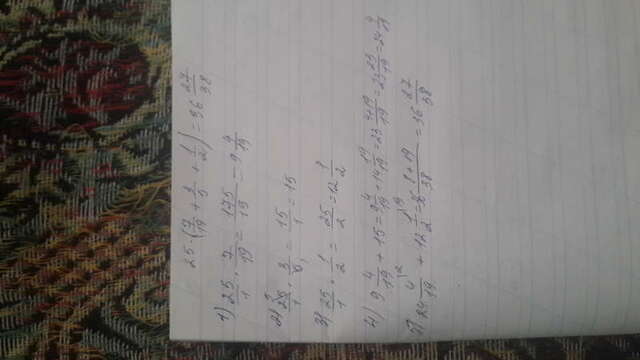 25·(7/19 + 3/5 + 1/2) = 36 27/38
1) 25/1 · 7/19 = 175/19 = 9 4/19
2) 25/1 · 3/5 = 15/1 = 15
3) 25/1 · 1/2 = 25/2 = 12 1/2
4) 9 4/19 + 15 = 9 4/19 + 14 19/19 = 23 4+19/19 = 23 23/19 = 24 4/19
5) 24 4/19 + 12 1/2 = 36 8+19/38 = 36 27/38